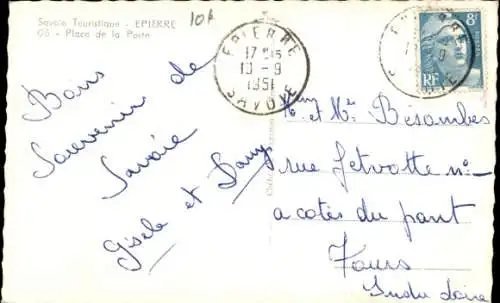 Savoie Touristique - EPIERRE
08 - Place de la Poste
10f
EPIERRE
17 H 15
10 - 9
1951
SAVOIE
8F
RF
Bons
Souvenir de
Savoie
Gisèle et Dany
Mr et Me Bésombes
rue Jetvotte no
a cotés du pont
Tours
Indre Loire